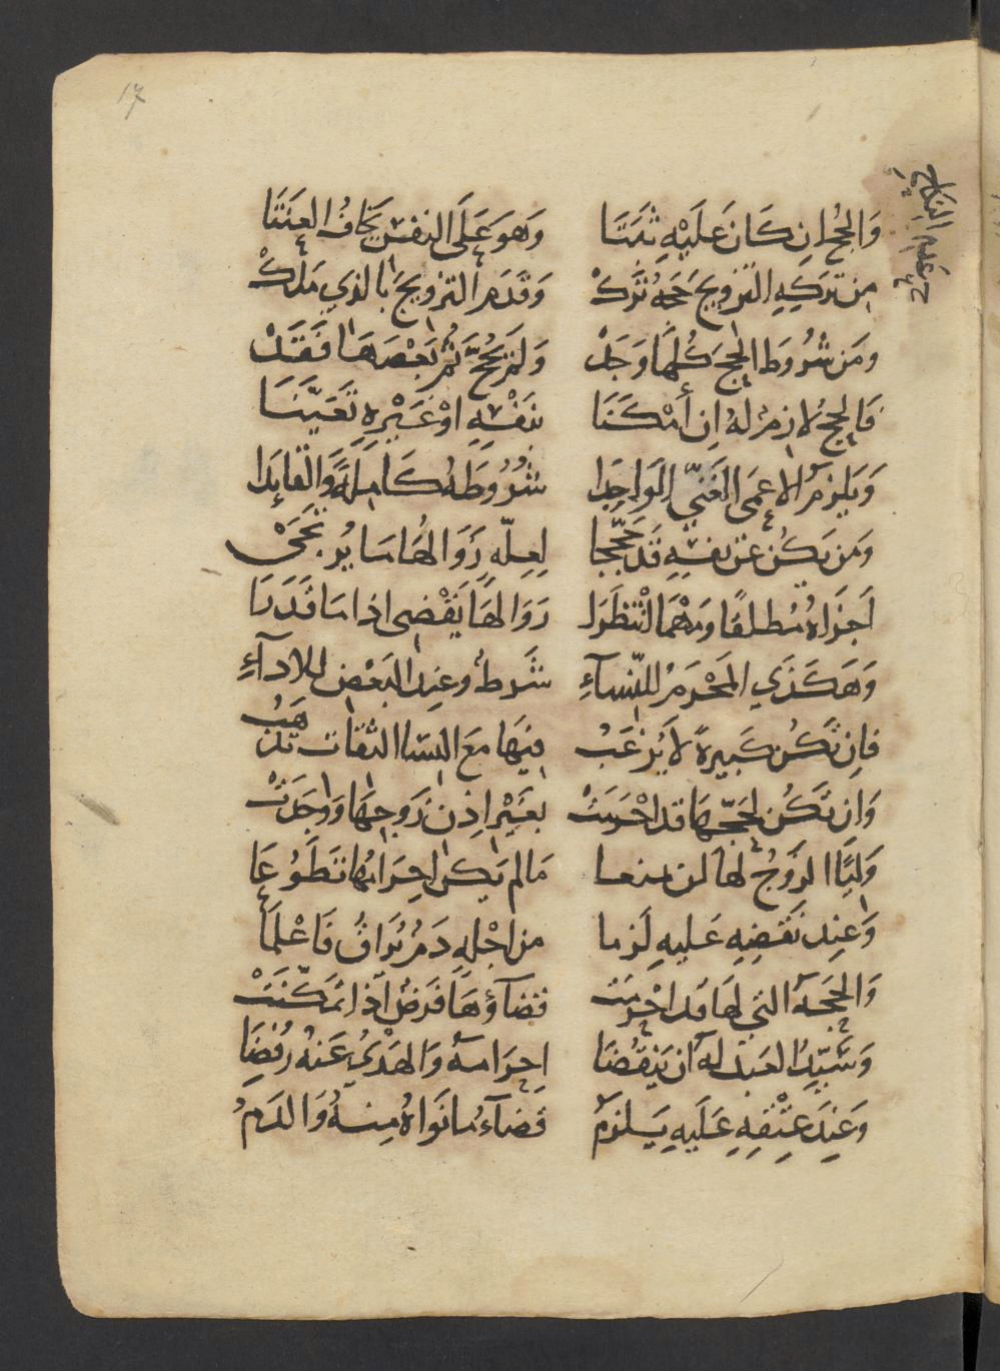 وَالحُج ان كَانَ عَلَيْهِ ثبَتَا وَهوَ عَلَى النفس يَخافُ العنَتَا
مِن تَركِهِ التزويج حَجهُ تَركْ وَقَدَم التزويجَ بالذي مَلَكْ
ومَن شرُوطَ الحجِ كُلهَا وَجَدْ وَلم يَحُجَّ ثُمَّ بَعْضَهَا فَقَدْ
فَالحجُ لازمٌ لهُ اِن أَمْكَنَا بنَفْسِهِ اوْ غَيْرِهِ تَعَيَّنَا
وَيَلزمُ الاعمَى الغَنيّ الوَاجِدا شُرُوطَهُ كَامِلةً وَالقايدَا
وَمَن يَكُن عَن نفسِهِ قَد حَجّجا لعِلّةٍ زَوَالهَا مَا يُرتجَى
اَجزَاهُ مُطلقًا وَمَهْمَا انْتظَرَا زَوَالهَا يَقْضِى اذا مَا قَدَرَا
وَهَكَذي المَحْرَمُ للنّسآءِ شَرطٌ وعِند البَعْضِ للادآءِ
فاِن تَكُن كَبيرةً لاَ يُرْغَبُ فيَها مَعَ النسَا الثقات تذهَبُ
وَان تَكُن لحَجّهَا قد احْرَمَتْ بغَيْر اِذن زَوجهَا وَوَجَدَتْ
وَليًَّا الزَوجُ لهَا لن يمنعا مَا لم يَكن احِرَامُها تَطَوُّعَا
وَعِند نَقضِهِ عَليهِ لَزما من اجْلهِ دَمٌ يُرَاقُ فَاعْلَمَا
وَالحجَة التي لهَا قد احْرمَتْ قضآؤهَا فَرضٌ اذا تمَكّنَتْ
وَسَيّدُ العَبد لهُ ان يَنْقُضَا احِرَامهُ وَالهَدْيُ عَنهُ رُفِضَا
وَعِندَ عِتْقِهِ عَلَيهِ يَلزمُ قضآءُ مَا نَوَاهُ مِنهُ وَالدَمُ